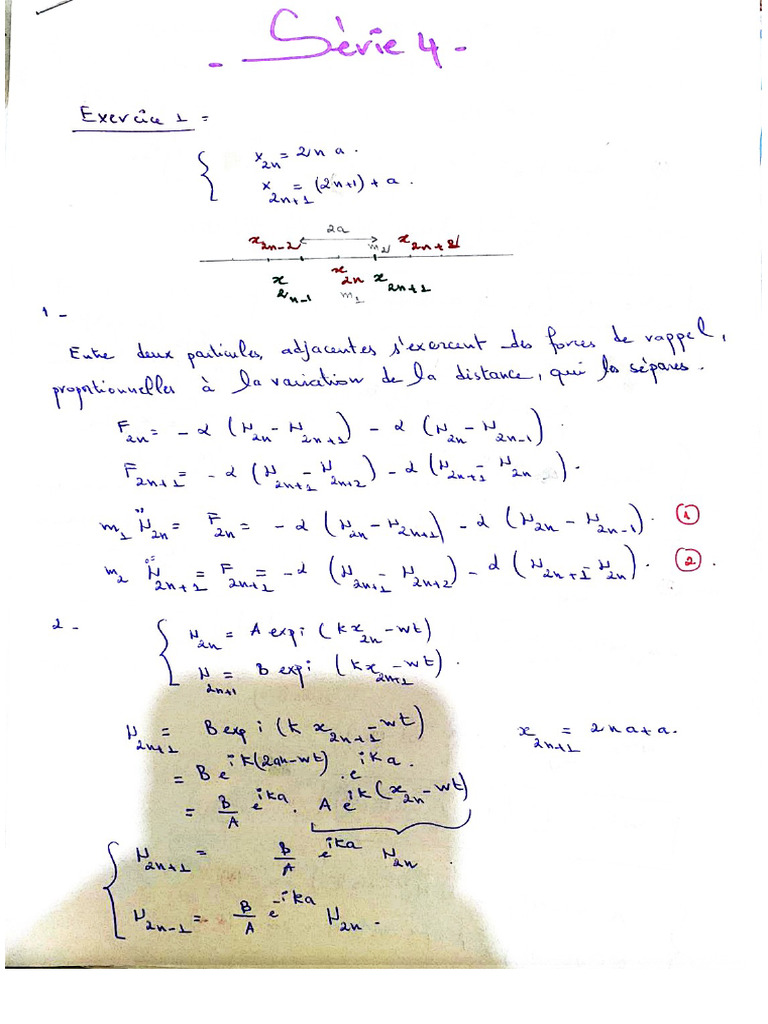 - Série 4 -
Exercice 1 =
x_{2n} = 2n a.
x_{2n+1} = (2n+1) + a.
2a
x_{2n-2} m_2 x_{2n+2}
x_{2n-1} x_{2n} x_{2n+1}
m_1
1 -
Entre deux particules, adjacentes s'exercent des forces de rappel,
proportionnelles à la variation de la distance, qui les sépares.
F_{2n} = - α (μ_{2n} - μ_{2n+1}) - α (μ_{2n} - μ_{2n-1}).
F_{2n+1} = - α (μ_{2n+1} - μ_{2n+2}) - α (μ_{2n+1} - μ_{2n}).
m_1 μ̈_{2n} = F_{2n} = - α (μ_{2n} - μ_{2n+1}) - α (μ_{2n} - μ_{2n-1}). ①
m_2 μ̈_{2n+1} = F_{2n+1} = - α (μ_{2n+1} - μ_{2n+2}) - α (μ_{2n+1} - μ_{2n}). ②.
2 -
μ_{2n} = A exp i (k x_{2n} - wt)
μ_{2n+1} = B exp i (k x_{2n+1} - wt).
μ_{2n+1} = B exp i (k x_{2n+1} - wt) x_{2n+1} = 2na + a.
= B e^{ik(2an-wt)} . e^{ika}.
= B/A e^{ika} . A e^{ik(x_{2n} - wt)}
μ_{2n+1} = B/A e^{ika} μ_{2n}.
μ_{2n-1} = B/A e^{-ika} μ_{2n}.